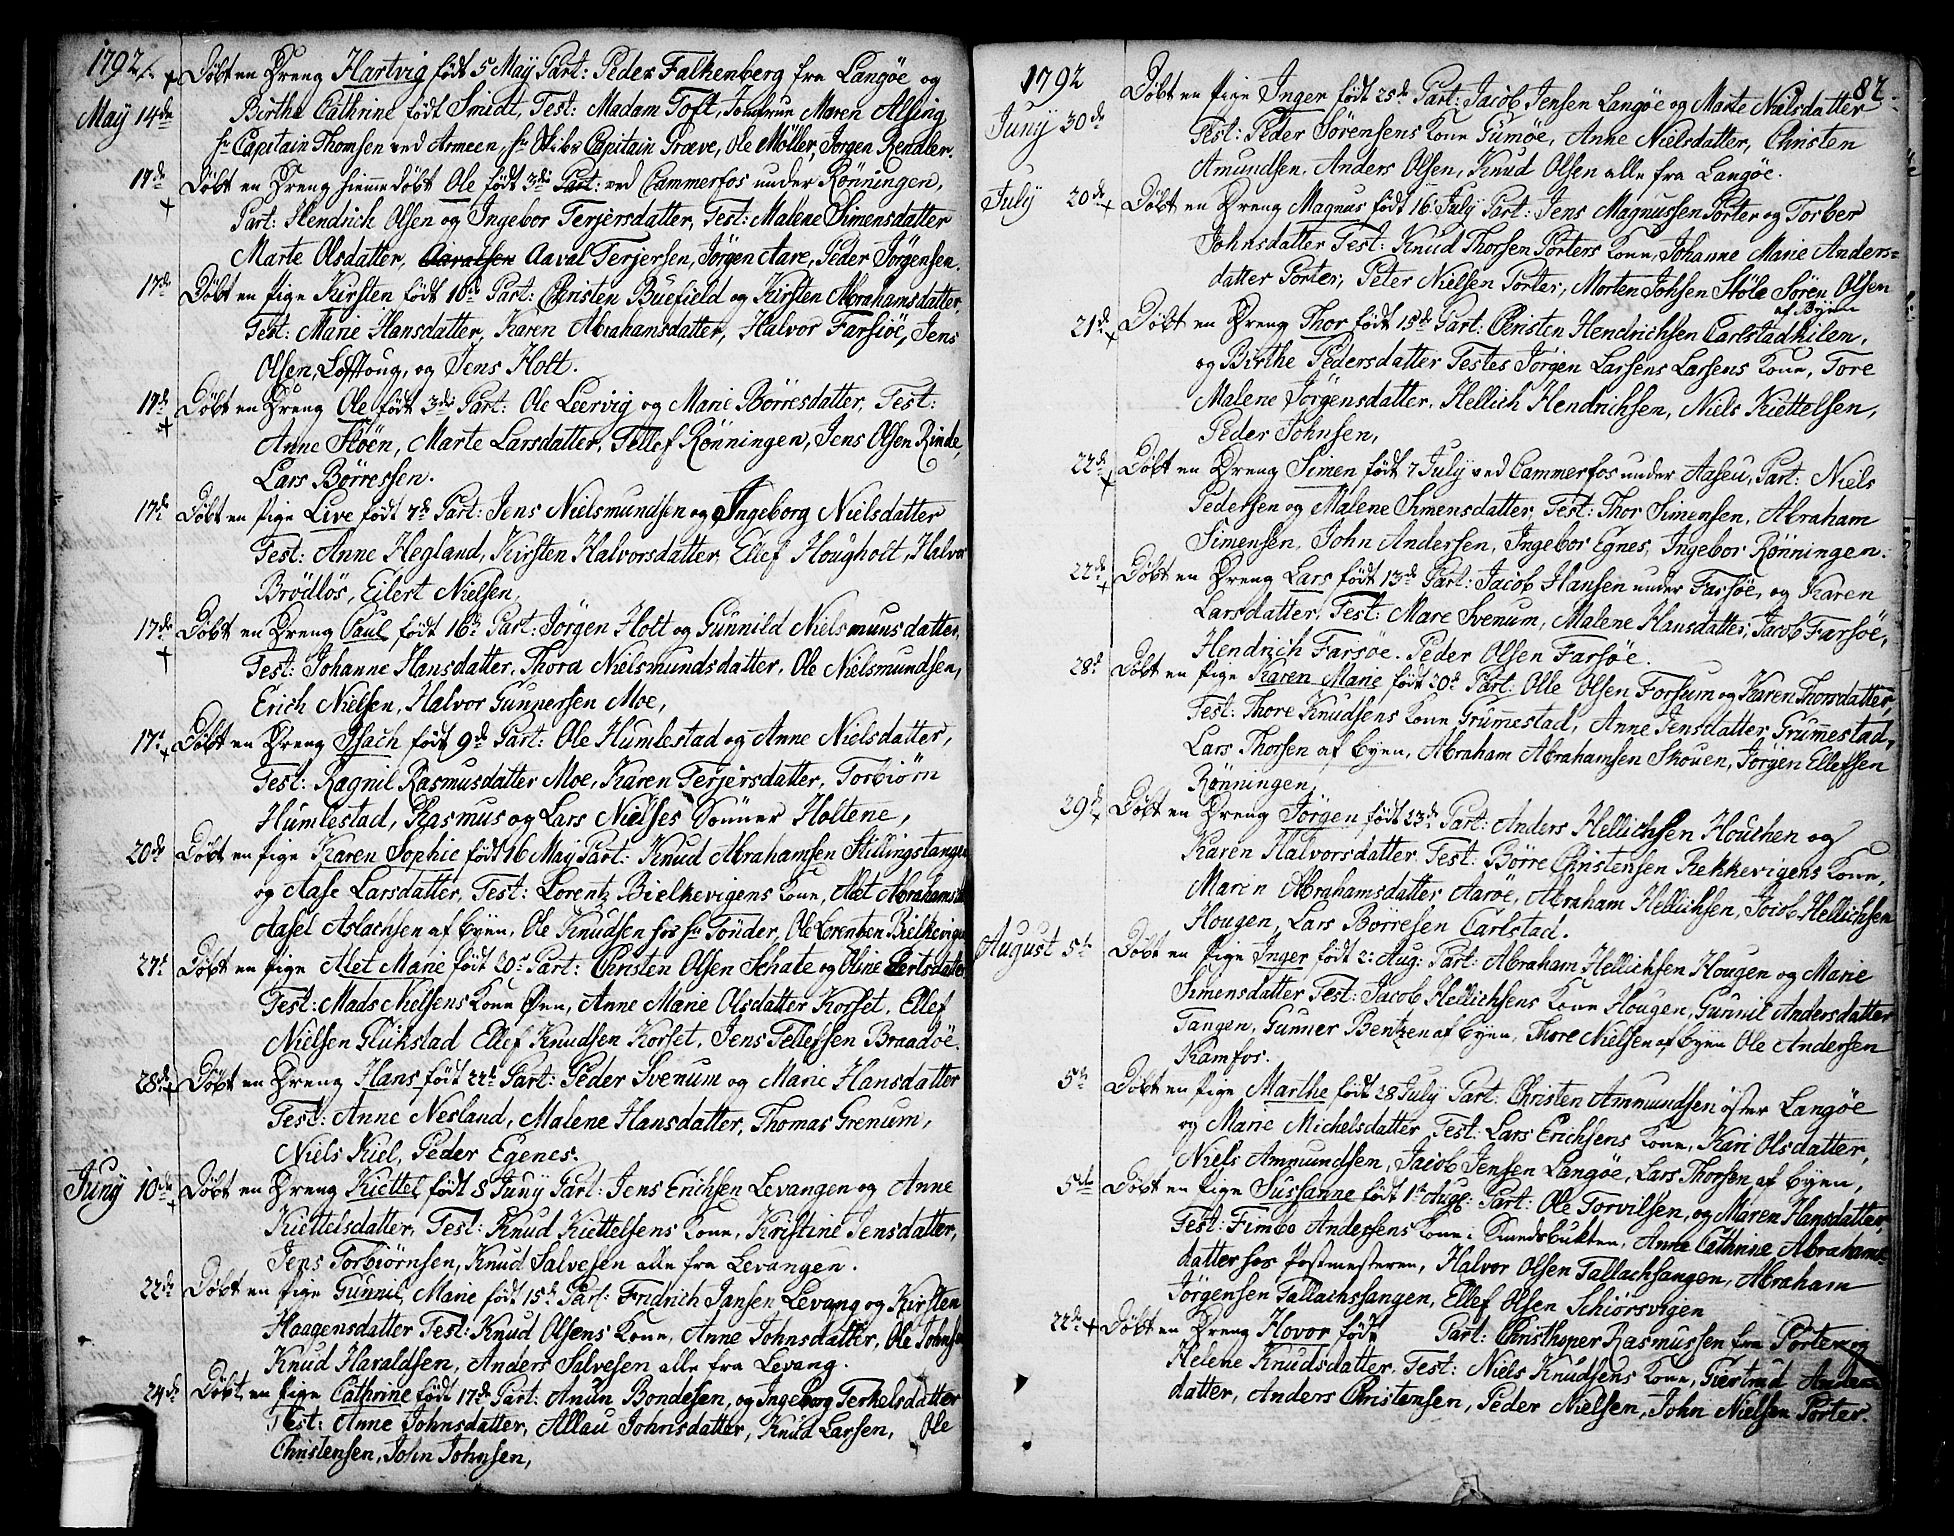 1792
May 14de Döbt en Dreng Hartvig födt 5 May Part: Peder Falkenberg fra Langöe og
Birthe Cathrine födt Smidt, Test: Madam Toft, Jomfrue Maren Alsing
Hr Capitain Thomsen ved Armeen, Hr Skibs Capitain Græve, Ole Möller, Jörgen Rendler.
17de Döbt en Dreng hiemmedöbt Ole födt 3de Part: ved Cammerfos under Rönningen,
Part: Hendrich Olsen og Ingebor Terjersdatter, Test: Malene Simensdatter
Marte Olsdatter, Aavalsen Aaval Terjersen, Jörgen Aare, Peder Jörgensen.
17de Döbt en Pige Kirsten födt 10de Part: Christen Buefield og Kirsten Abrahamsdatter,
Test: Marie Hansdatter, Karen Abrahamsdatter, Halvor Farsiöe, Jens
Olsen, Lofttoug, og Jens Holt.
17de Döbt en Dreng Ole födt 3de Part: Ole Leervig og Marie Börresdatter, Test:
Anne Stöen, Marte Larsdatter, Tellef Rönningen, Jens Olsen Rinde,
Lars Börressen.
17de Döbt en Pige Live födt 7de Part: Jens Nielsmundsen og Ingeborg Nielsdatter
Test: Anne Hegland, Kirsten Halvorsdatter, Ellef Hougholt, Halvor
Brödlös, Eilert Nielsen,
17de Döbt en Dreng Paul födt 16de Part: Jörgen Holt og Gunnild Nielsmunsdatter,
Test: Johanne Hansdatter, Thora Nielsmundsdatter, Ole Nielsmundsen,
Erich Nielsen, Halvor Gunnersen Moe,
17de Döbt en Dreng Isach födt 9de Part: Ole Humlestad og Anne Nielsdatter,
Test: Ragnil Rasmusdatter Moe, Karen Terjersdatter, Torbiörn
Humlestad, Rasmus og Lars Nielses Sönner Holtene,
20de Döbt en Pige Karen Sophie födt 16 May Part: Knud Abrahamsen Stillingstangen
og Aase Larsdatter, Test: Lorentz Bielkevigens Kone, Alet Abrahamsd
Aasel Aslachsen af Byen, Ole Knudsen hos Hr Tönder, Ole Lorentsen Bielkevigen
27de Döbt en Pige Alet Marie födt 20de Part: Christen Olsen Schate og Oline Bertsdatter
Test: Mads Nielsens Kone Öen, Anne Marie Olsdatter Korset, Ellef
Nielsen Flikstad Ellef Knudsen Korset, Jens Tellefsen Braadöe.
28de Döbt en Dreng Hans födt 22de Part: Peder Svenum og Marie Hansdatter
Test: Anne Nesland, Malene Hansdatter, Thomas Grenum,
Niels Kiel, Peder Egenes.
Juny 10de Döbt en Dreng Kiettel födt 8 Juny Part: Jens Erichsen Levangen og Anne
Kiettelsdatter, Test: Knud Kiettelsens Kone, Kristine Jensdatter,
Jens Torbiörnsen, Knud Salvesen alle fra Levangen.
22de Döbt en Pige Gunnil Marie födt 15de Part: Fridrich Jansen Levang og Kirsten
Haagensdatter Test: Knud Olsens Kone, Anne Johnsdatter, Ole Johnsen
Knud Haraldsen, Anders Salvesen alle fra Levang.
24de Döbt en Pige Cathrine födt 17de Part: Anun Bondesen, og Ingeborg Terkelsdatter
Test: Anne Johnsdatter, Allau Johnsdatter, Knud Larsen, Ole
Christensen, John Johnsen,
1792 82.
Juny 30de Döbt en Pige Inger födt 25de Part: Jacob Jensen Langöe og Marte Nielsdatter
Test: Peder Sörensens Kone Gumöe, Anne Nielsdatter, Christen
Amundsen, Anders Olsen, Knud Olsen alle fra Langöe.
July 20de Döbt en Dreng Magnus födt 16 July Part: Jens Magnussen Porter og Torber
Johnsdatter Test: Knud Thorsen Porters Kone, Johanne Marie Anders-
datter Porter, Peter Nielsen Porter, Morten Johsen Stöle Sören Olsen
af Byen
21de Döbt en Dreng Thor födt 15de Part: Christen Hendrichsen Carlstadkilen,
og Birthe Pedersdatter Testes Jörgen Larsens Larsens Kone, Tore
Malene Jörgensdatter, Hellich Hendrichsen, Niels Kiettelsen,
Peder Johnsen,
22de Döbt en Dreng Simen födt 7 July ved Cammerfos under Aaseu, Part: Niels
Pedersen og Malene Simensdatter, Test: Thor Simensen, Abraham
Simensen, John Andersen, Ingebor Egnes, Ingebor Rönningen.
22de Döbt en Dreng Lars födt 13de Part: Jacob Hansen under Farsöe, og Karen
Larsdatter, Test: Mare Svenum, Malene Hansdatter, Jacob Farsöe,
Hendrich Farsöe. Peder Olsen Farsöe.
28de Döbt en Pige Karen Marie födt 20de Part: Olle Olsen Forsum og Karen Thorsdatter,
Test: Thore Knudsens Kone Grummestad, Anne Jensdatter Grummestad,
Lars Thorsen af Byen, Abraham Abrahamsen Skouen, Jörgen Ellefsen
Rönningen,
29de Döbt en Dreng Jörgen födt 23de Part: Anders Hellichsen Houchen og
Karen Halvorsdatter, Test: Börre Christensen Rekkevigens Kone,
Maren Abrahamsdatter, Aaröe, Abraham Hellichsen, Jocob Hellichsen
Hougen, Lars Börresen Carlstad.
August 5te Döbt en Pige Inger födt 2: Aug: Part: Abraham Hellichsen Hougen og Marie
Simensdatter Test: Jacob Hellichsens Kone Hougen, Gunnil Andersdatter
Tangen, Gunner Bentzen af Byen, Thore Nielsen af Byen Ole Andersen
Kamfos.
5te Döbt en Pige Marthe födt 28 July Part: Christen Ammundsen öster Langöe
og Marie Michelsdatter Test: Lars Erichsens Kone, Kari Olsdatter,
Niels Ammundsen, Jacob Jensen Langöe, Lars Thorsen af Byen,
5de Döbt en Pige Sussanne födt 1te Aug: Part: Ole Torvilsen, og Maren Hansdatter,
Test: Fimbo Andersens Kone i Smedsbukten, Anne Cathrine Abrahams-
datter hos Postmesteren, Halvor Olsen Tallachsangen, Abraham
Jörgensen Tallachssangen, Ellef Olsen Schiörsvigen
22de Döbt en Dreng Hovor födt Part: Christhoper Rasmussen fra Porter og
Helene Knudsdatter, Test: Niels Knudsens Kone, Giertrud Anders
datter, Anders Christensen, Peder Nielsen, John Nielsen Porter.